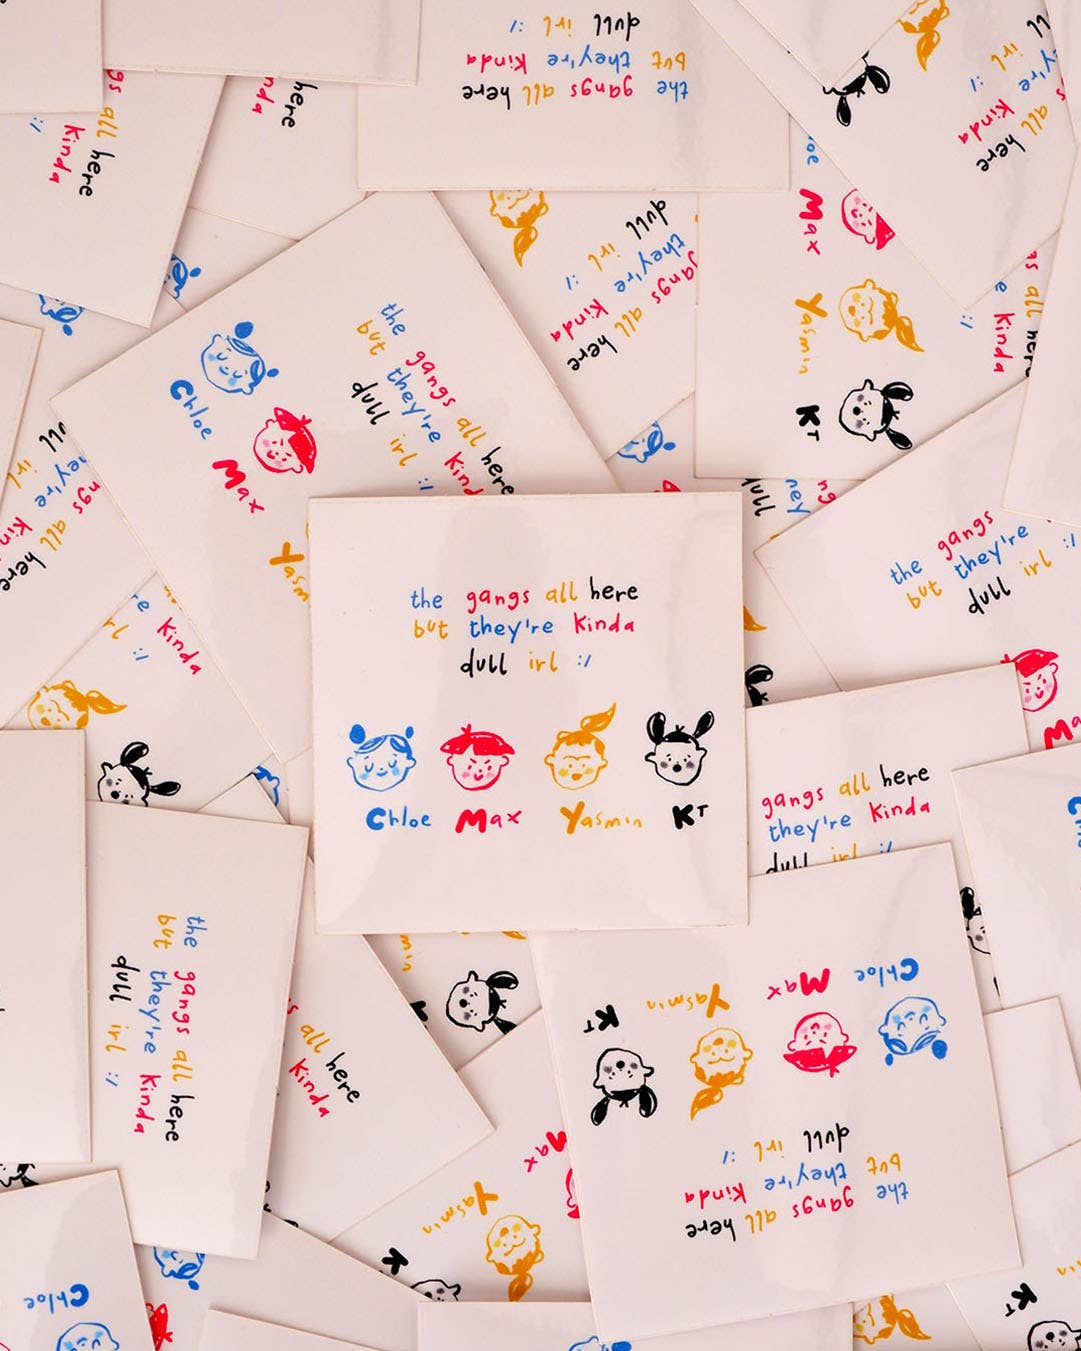 the gangs all here
but they're kinda
dull irl :/
Chloe Max Yasmin KT